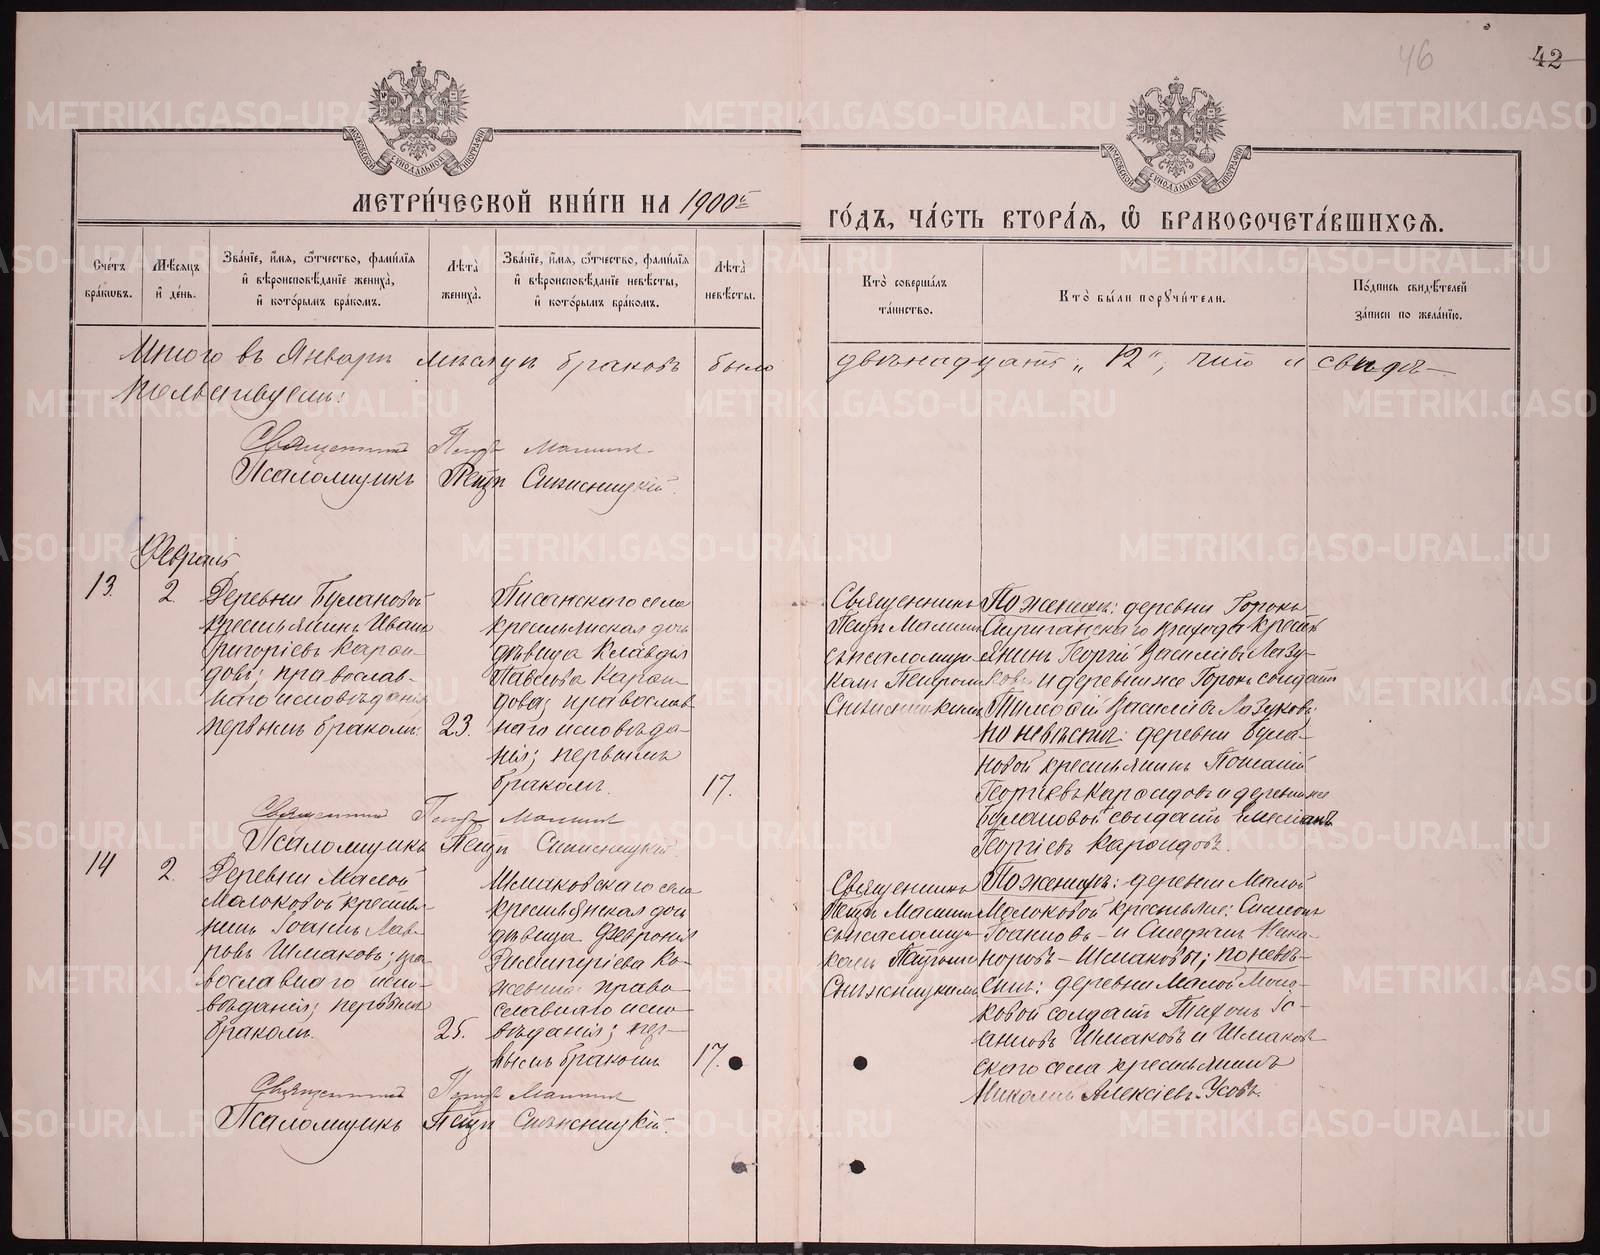 46
42
МОСКОВСКОЙ СѴНОДАЛЬНОЙ ТИПОГРАФІИ
МОСКОВСКОЙ СѴНОДАЛЬНОЙ ТИПОГРАФІИ
МЕТРИ́ЧЕСКОЙ КНИ́ГИ НА 1900й
ГО́ДЪ, ЧА́СТЬ ВТОРА́Я, Ѿ БРАКОСОЧЕТА́ВШИХСЯ.
Сче́тъ бра́ковъ.
Мѣ́сяцъ и҆ де́нь.
Зва́нїе, и҆́мя, ѻ҆́тчество, фами́лїя
и҆ вѣроисповѣ́данїе жениха̀,
и҆ кото́рымъ бра́комъ.
Лѣта̀ жениха̀.
Зва́нїе, и҆́мя, ѻ҆́тчество, фами́лїя
и҆ вѣроисповѣ́данїе невѣ́сты,
и҆ кото́рымъ бра́комъ.
Лѣта̀ невѣ́сты.
Кто̀ соверша́лъ та́инство.
Кто̀ бы́ли порꙋчи́тели.
По́дпись свидѣ́телей за́писи по жела́нїю.
Итого въ Январѣ мѣсяцѣ браковъ было двѣнадцать „12", что и свидѣ-
тельствуемъ:
Священникъ Петръ
Псаломщикъ Петръ
Февраль
13.
2.
Деревни Булановой
крестьянинъ Иванъ
Григоріевъ Каран-
довъ; православ-
наго исповѣданія
первымъ бракомъ.
23.
Писанскаго села
крестьянская дочь
дѣвица Клавдія
Павлова
православ
наго исповѣда-
нія; первымъ
бракомъ.
17.
Священникъ
Петръ
съ псаломщи-
комъ Петромъ
По женихѣ: деревни Горокъ
прихода крест
янинъ Георгій Васильевъ Лазу-
ковъ и деревни же Горокъ солдатъ
Тимофій Васильевъ Лазуковъ.
по невѣстѣ: деревни Була-
новой крестьянинъ
Георгіевъ и деревни же
Булановой солдатъ Емеліанъ
Георгіевъ
Священникъ Петръ
Псаломщикъ Петръ
14
2.
Деревни Малой
Молоковой крестья-
нинъ Іоаннъ Лав-
ровъ Шмаковъ; пра-
вославнаго испо-
вѣданія; первымъ
бракомъ.
25.
Шмаковскаго села
крестьянская дочь
дѣвица Февронія
Димитріева Ко-
жевина право-
славнаго испо-
вѣданія; пер-
вымъ бракомъ
17.
Священникъ
Петръ
съ псаломщи-
комъ Петромъ
По женихѣ: деревни Малой
Молоковой крестьяне: Симеонъ
Іоанновъ и Стефанъ Ника-
норовъ Шмаковы; по невѣ-
стѣ: деревни Малой Моло-
ковой солдатъ Тихонъ Іо-
анновъ Шмаковъ и Шмаков
скаго села крестьянинъ
Николай Алексіевъ Усовъ.
Священникъ Петръ
Псаломщикъ Петръ
METRIKI.GASO-URAL.RU